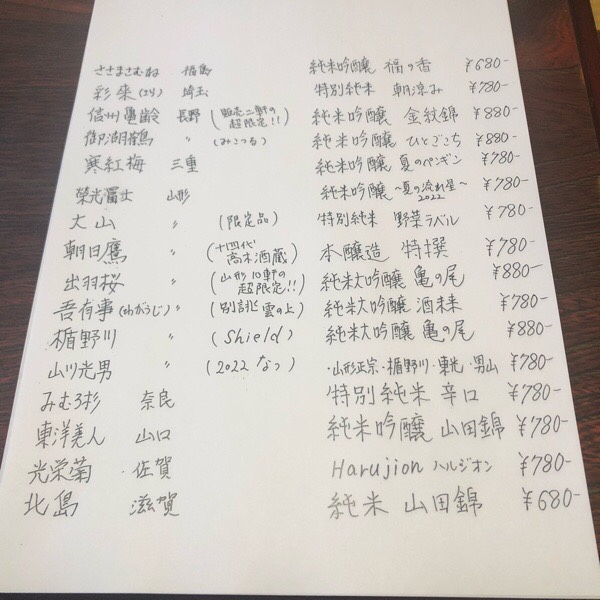 ささまさむね 福島 純米吟醸 福の香 ¥680-
彩來(さら) 埼玉 特別純米 朝涼み ¥780-
信州亀齢 長野 (販売二軒の超限定!!) 純米吟醸 金紋錦 ¥880-
御湖鶴 〃 (みこつる) 純米吟醸 ひとごこち ¥880-
寒紅梅 三重 純米吟醸 夏のペンギン ¥780-
榮光冨士 山形 純米吟醸 ~夏の流れ星~2022 ¥780-
大山 〃 (限定品) 特別純米 野菜ラベル ¥780-
朝日鷹 〃 (十四代高木酒蔵) 本醸造 特撰 ¥780-
出羽桜 〃 (山形10軒の超限定!!) 純米大吟醸 亀の尾 ¥880-
吾有事(わがうじ) 〃 (別誂 雲の上) 純米大吟醸 酒未来 ¥780-
楯野川 〃 (Shield) 純米大吟醸 亀の尾 ¥880-
山川光男 〃 (2022 なつ) ・山形正宗・楯野川・東光・男山 ¥780-
みむろ杉 奈良 特別純米 辛口 ¥780-
東洋美人 山口 純米吟醸 山田錦 ¥780-
光栄菊 佐賀 Harujion ハルジオン ¥780-
北島 滋賀 純米 山田錦 ¥680-